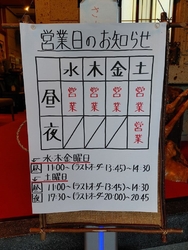 さ
営業日のお知らせ
水 木 金 土
昼 営業 営業 営業 営業
夜 営業
水木金曜日
昼 11:00～(ラストオーダー13:45)～14:30
土曜日
昼 11:00～(ラストオーダー13:45)～14:30
夜 17:30～(ラストオーダー20:00)～20:45